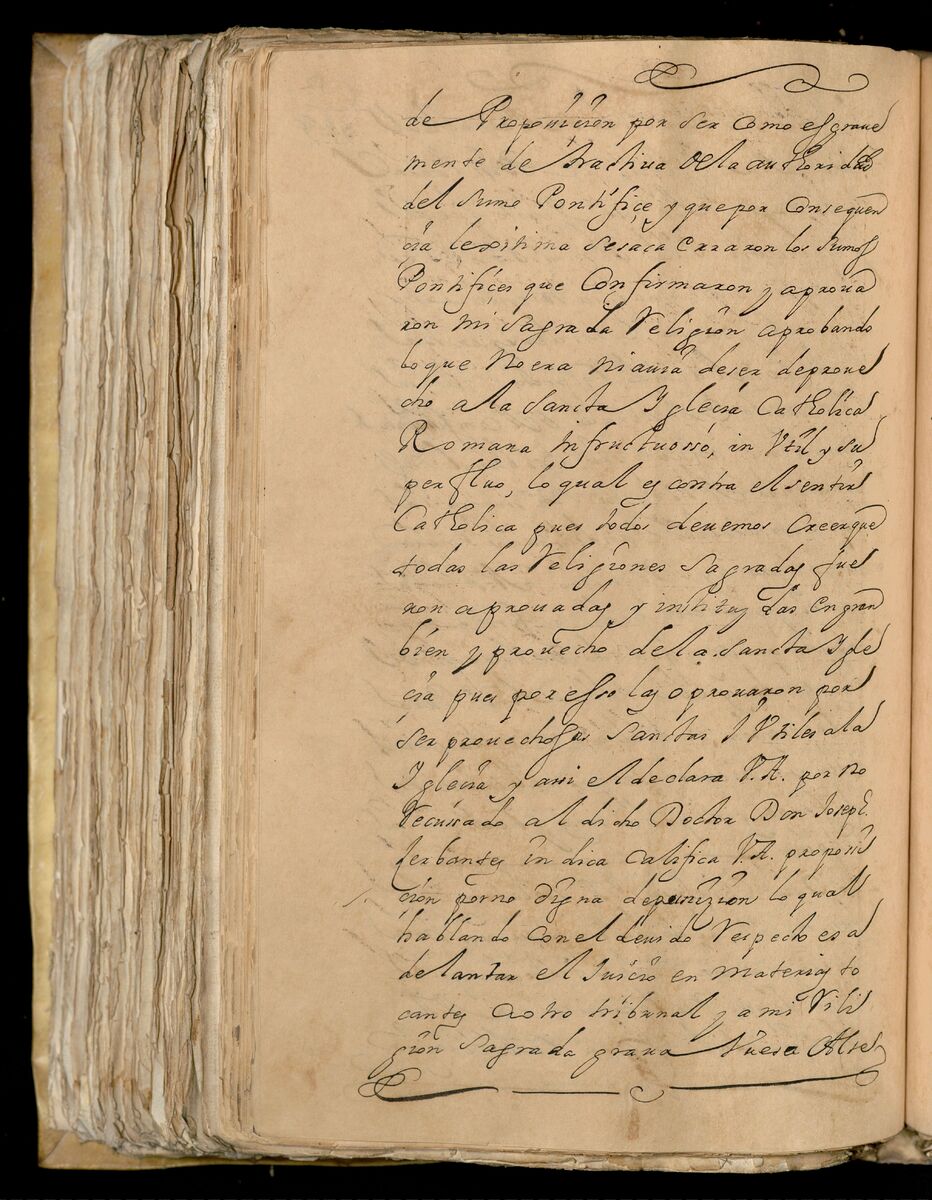 de Proposición por ser como es graue
mente detractiua de la authoridad
del Sumo Pontífiçe y que por Consequen
cia lexitima se saca erraron los Sumos
Pontífiçes que Confirmaron y aproua
ron mi Sagrada Religion aprobando
lo que No era ni auia de ser de proue
cho a la Sancta Yglecia Catholica
Romana infructuosso, in Vtil y su
perfluo, lo qual es contra el sentir
Catholica pues todos deuemos Creer que
todas las Religiones Sagradas fue
ron aprouadas y institúydas en gran
bien y prouecho de la Sancta Ygle
cia pues por esso las aprouaron por
ser prouechosas Sanctas i Vtiles a la
Yglecia y assi el declara V.A. por no
Recussado al dicho Doctor Don Joseph
Zerbantes indica califica V.A. proposi
ción por no digna de punizion lo qual
hablando con el deuido Respecto es a
delantar el Juicio en materias to
cantes a otro tribunal y a mi Reli
gion Sagrada graua Vuesa Alte